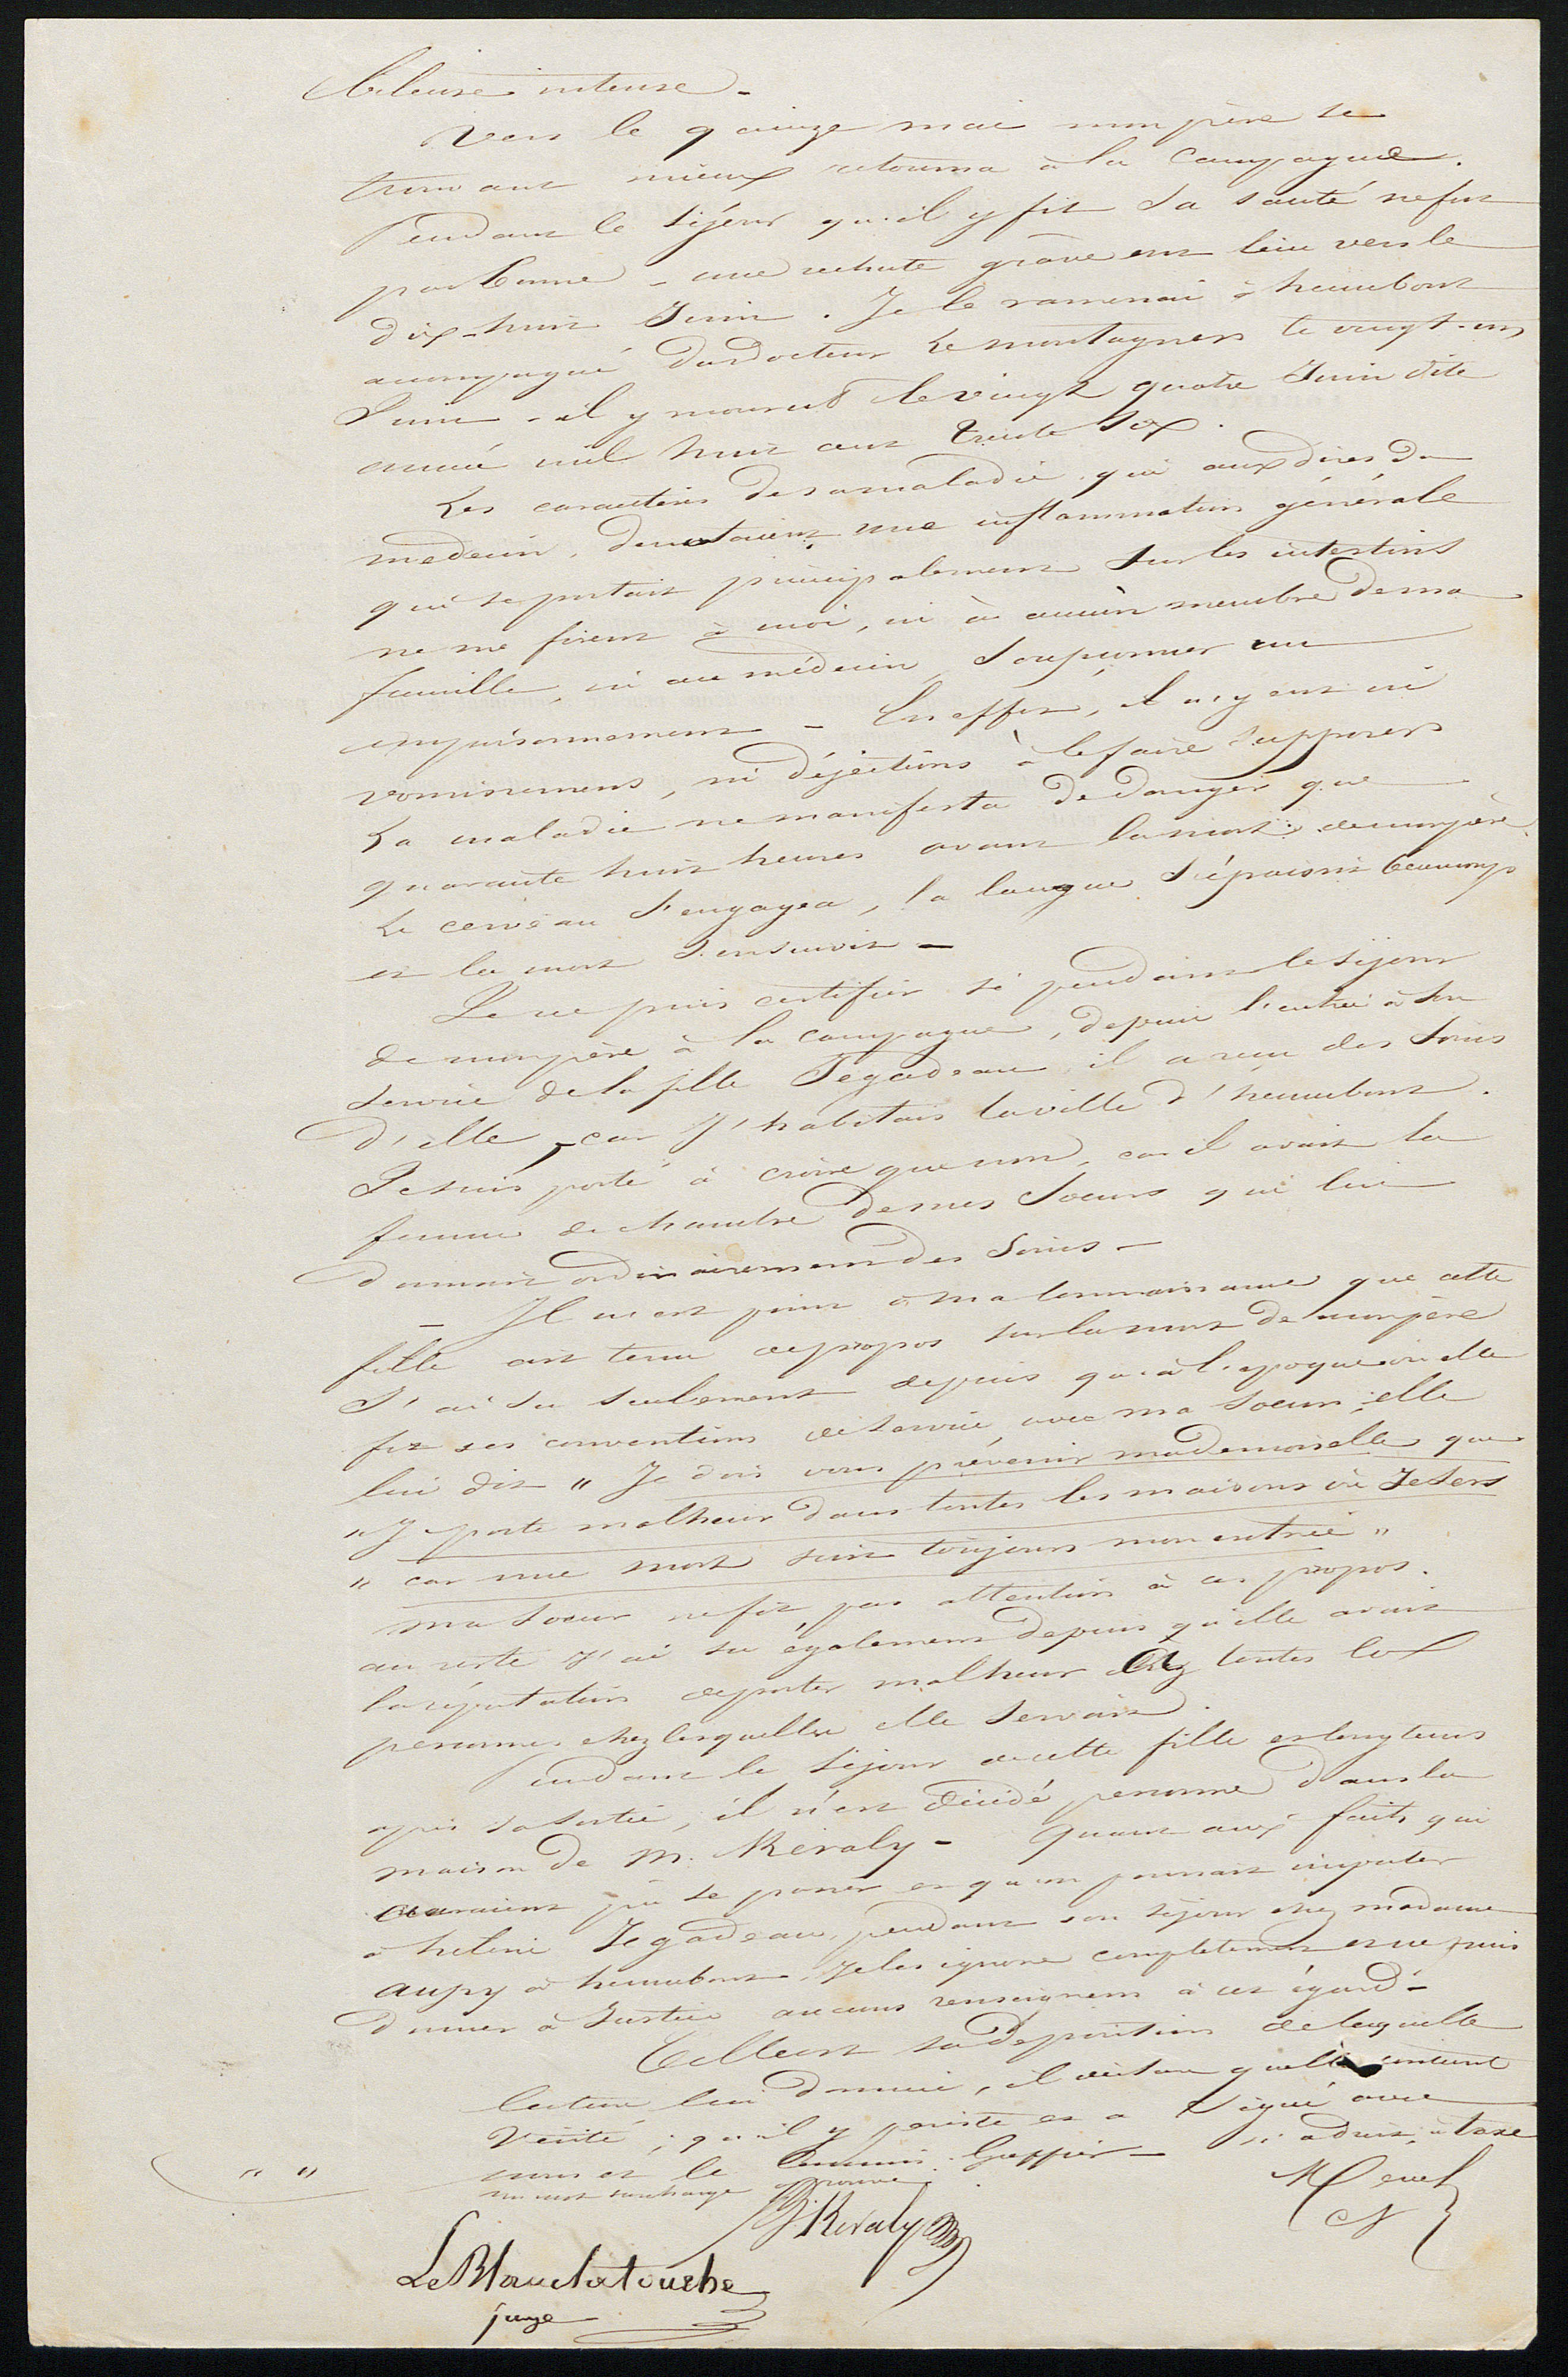 bilieuse intense -
Vers le quinze mai mon père se
trouvant mieux retourna à la Campagne.
Pendant le séjour qu'il y fit Sa santé ne fut
pas bonne - une rechute grave eut lieu vers le
dix-huit Juin. Je le ramenai à hennebont
accompagné du Docteur Le montagner le vingt-un
Juin - il y mourut le vingt quatre Juin dite
année mil huit cent trente Six.
Les caractères de sa maladie qui aux dires du
medecin, denotaient une inflammation générale
qui se portait principalement sur les intestins
ne me firent à moi, ni à aucun membre de ma
famille, ni au médecin, Soupçonner un
empoisonnement - En effet, il n'y eut ni
vomissemens, ni déjections à le faire Supposer
La maladie ne manifesta de danger que
quarante huit heures avant la mort de mon père.
Le cerveau S'engagea, la langue S'épaissit beaucoup
et la mort S'ensuivit -
Je ne puis certifier si pendant le séjour
de mon père à la campagne, depuis l'entrée à son
Service de la fille Jegadeau, il a reçu des Soins
d'elle, car J'habitais la ville d'hennebont.
Je suis porté à croire que non, car il avait la
femme de chambre de mes Soeurs qui lui
donnait ordinairement des Soins -
- Il n'est point à ma Connaissance que cette
fille ait tenu de propos sur la mort de mon père
J'ai su Seulement depuis qu'à l'époque où elle
fit ses conventions de Service avec ma Soeur, elle
lui dit " Je dois vous prévenir mademoiselle que
" Je porte malheur dans toutes les maisons où Je Sers
" car une mort suit toujours mon entrée "
ma Soeur ne fit pas attention à ces propos.
au reste J'ai su également depuis qu'elle avait
la réputation de porter malheur chez toutes les
personnes chez lesquelles elle Servait.
Pendant le Séjour de cette fille et longtems
après sa Sortie, il n'est décédé personne dans la
maison de M. Kerally - Quant aux faits qui
auraient pu se passer et qu'on pourrait imputer
à heleine Jegadeau, pendant son séjour chez madame
aupy à hennebont, Je les ignore complètement et ne puis
donner à Justice aucuns renseignemens à cet égard -
Telle est sa déposition de laquelle
lecture lui donnée, il déclare qu'elle contient
Vérité, qu'il y persiste et a Signé avec
nous et le Commis Greffier -
un mot surchargé approuvé
" "
LeBlanchatouche
juge